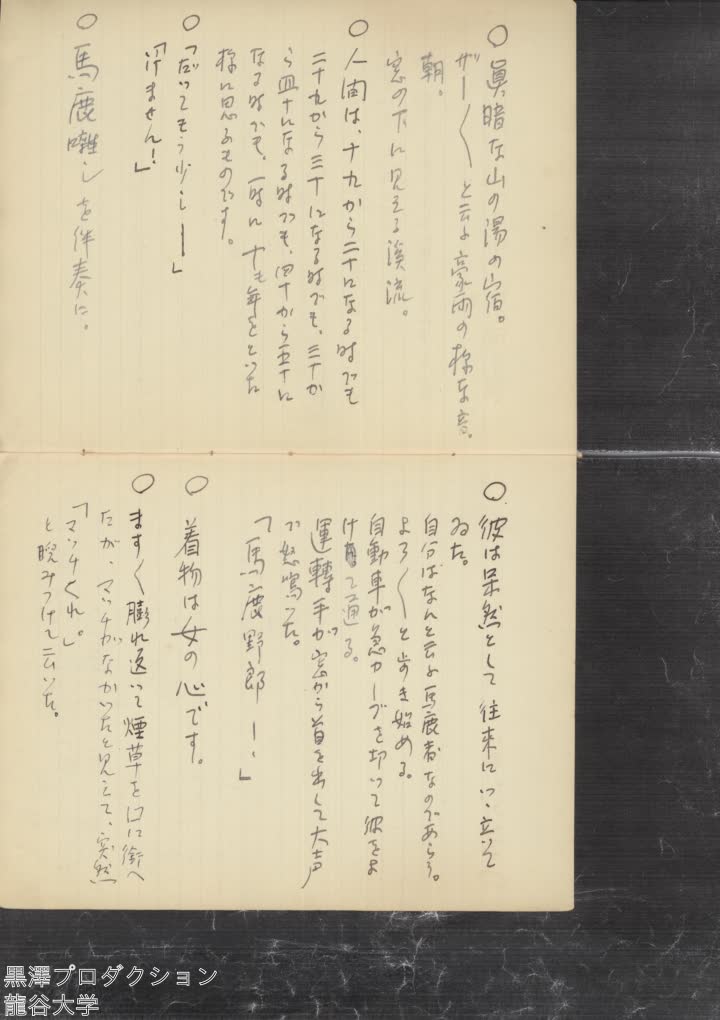 ○眞暗な山の湯の宿。
ザー〱と云ふ豪雨の様な音。
朝。
窓の下に見える溪流。
○人間は、十九から二十になる時でも
二十九から三十になる時でも、三十か
ら四十になる時でも、四十から五十に
なる時でも、一時に十も年をとった
様に思ふものです。
○「だってもう少しー」
「いけません!」
○馬鹿囃しを伴奏に。
○彼は呆然として往来につっ立って
ゐた。
自分はなんと云ふ馬鹿者なのであらう。
よろ〱と歩き始める。
自動車が急カーブを切って彼をよ
けて通る。
運轉手が窓から首を出して大声
で怒鳴った。
「馬鹿野郎ー!」
○着物は女の心です。
○ます〱膨れ返って煙草を口に銜へ
たが、マッチがなかったと見えて、突然
「マッチくれ。」
と睨みつけて云いた。
黒澤プロダクション
龍谷大学